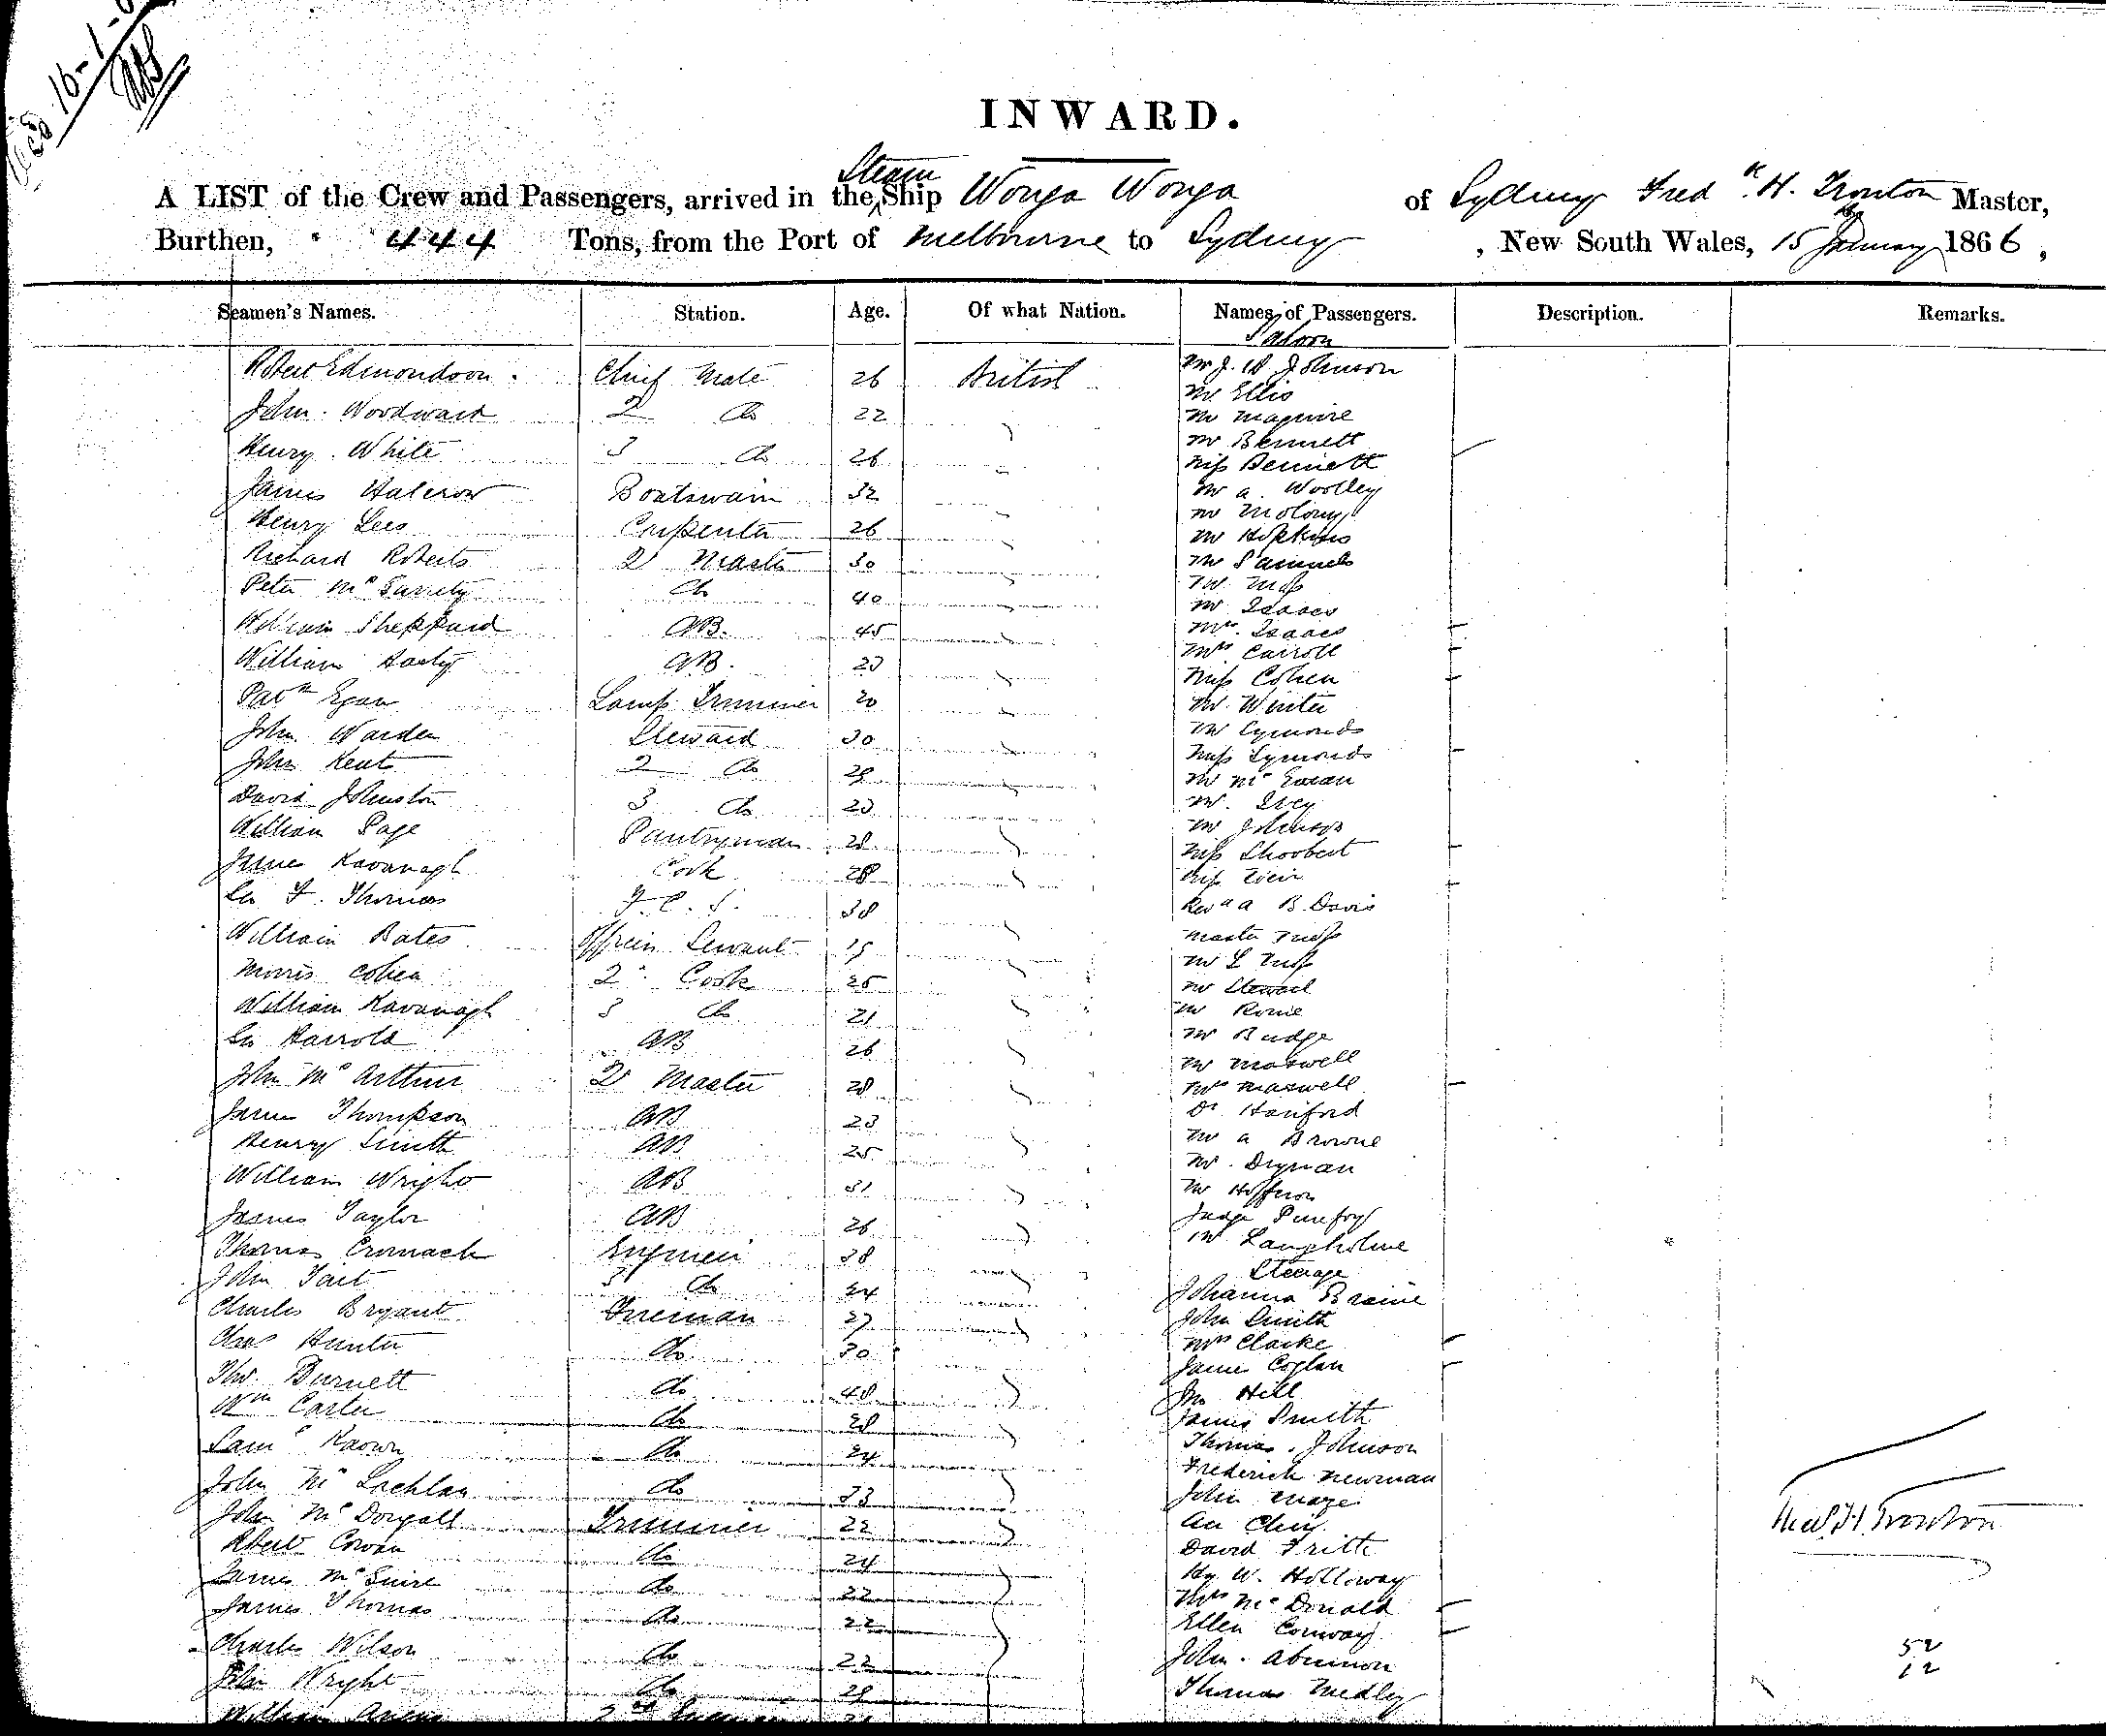 16-1-6
INWARD.
A LIST of the Crew and Passengers, arrived in the Steam Ship Wonga Wonga of Sydney Fred.k H. Trouton Master,
Burthen, 444 Tons, from the Port of Melbourne to Sydney, New South Wales, 15 January 1866,
Seamen's Names. Station. Age. Of what Nation. Names of Passengers. Description. Remarks.
Saloon
Robert Edmondson Chief Mate 26 British Mr J. W Johnson
Mr Ellis
John Woodward 2 Do 22 Mr Maguire
Mr Bennett
Henry White 3 Do 26 Miss Bennett
James Halcrow Boatswain 32 Mr A. Woolley
Mr Molony
Henry Lees Carpenter 26 Mr Hopkins
Richard Roberts 2 Master 30 Mr Samuels
Peter McGarrity Do 40 Mr Moss
Mr Isaacs
William Sheppard AB. 45 Mrs. Isaacs
Mrs Carroll
William AB. 23 Miss Cohen
Patk Egan Lamp Trimmer 20 Mr. Winter
John Warden Steward 30 Mr Symonds
Miss Symonds
John Kent 2 Do 29 Mr Mc Ewan
David Johnston 3 Do 23 Mr. Ivey
William Page Pantryman 28 Mr Johnson
Miss Shoobert
James Kavanagh Cook 28 Miss Weir
Geo F. Thomas F. C. S. 38 Revd A B. Davis
William Bates Officers Servant 15 Master Moss
Mr L Moss
Morris Cohen 2 Cook 25 Mr Steward
William Kavanagh 3 Do 21 Mr
Geo Harrold AB 26 Mr Budge
Mr Maxwell
John McArthur 2 Master 28 Mrs Maxwell
James Thompson AB 23 Dr. Hanford
Henry Smith AB 25 Mr A Browne
Mr. Dignan
William Wright AB 31 Mr Heffron
James Taylor AB 26 Judge Purefoy
Thomas Cromack Engineer 38 Mr. Langholme
Steerage
John Tait 3 Do 24 Johanna Braine
Charles Bryant Fireman 27 John Smith
Chas Hunter Do 30 Mrs Clarke
Jane Coglan
Tho. Burnett Do 48 Jno Hill
Wm Carter Do 28 James Smith
Saml Do 24 Thomas Johnson
Frederick Newman
John McLachlan Do 33 John Maze
John McDougall Trimmer 22 Au Ching
Robert Cowan Do 24 David Frith
James McGuire Do 22 Hy W. Holloway
James Thomas Do 22 Mrs McDonald
Ellen Conway
Charles Wilson Do 22 John
John Wright Do 29 Thomas Medley
William
Fred H Trouton
52
12